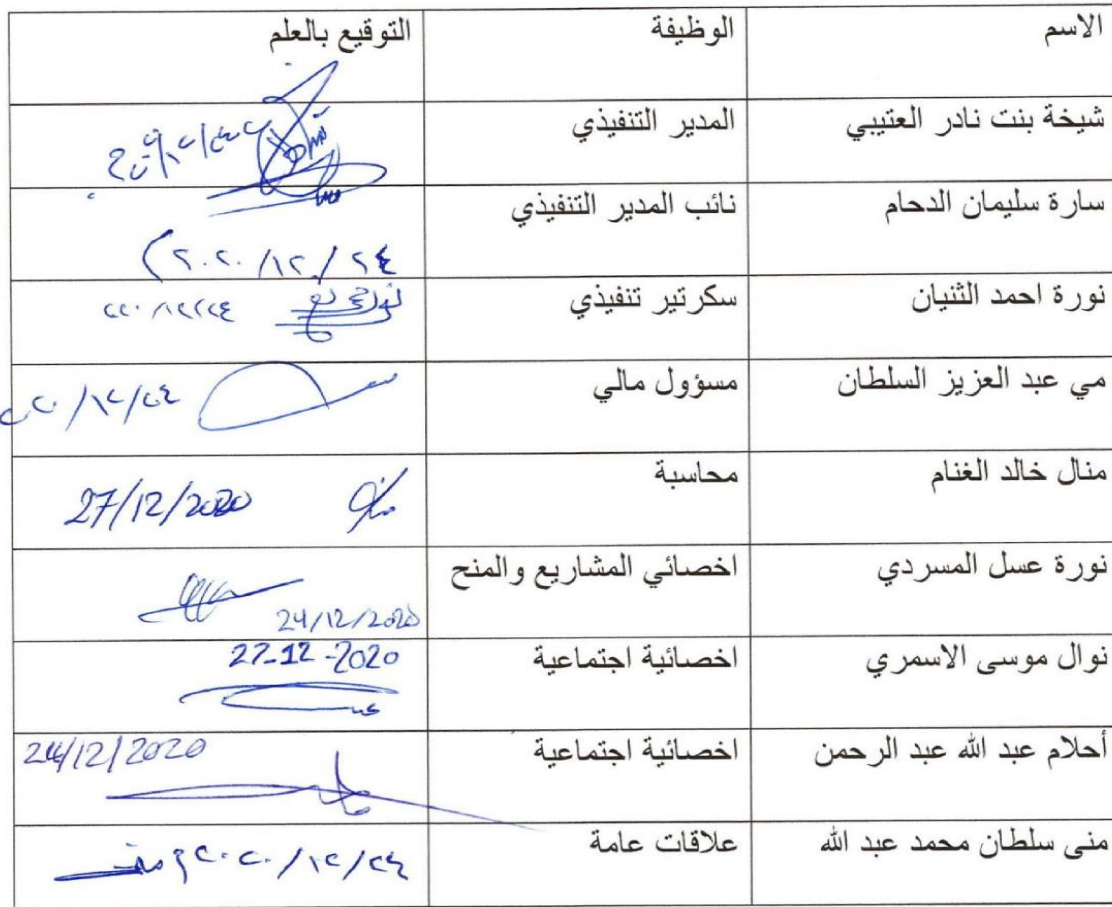 الاسم الوظيفة التوقيع بالعلم
شيخة بنت نادر العتيبي المدير التنفيذي
سارة سليمان الدحام نائب المدير التنفيذي
٢٠٢٠/١٢/٢٤
نورة احمد الثنيان سكرتير تنفيذي
مي عبد العزيز السلطان مسؤول مالي
منال خالد الغنام محاسبة
27/12/2020
نورة عسل المسردي اخصائي المشاريع والمنح
24/12/2020
نوال موسى الاسمري اخصائية اجتماعية 27-12-2020
أحلام عبد الله عبد الرحمن اخصائية اجتماعية 24/12/2020
منى سلطان محمد عبد الله علاقات عامة
٢٠٢٠/١٢/٢٤